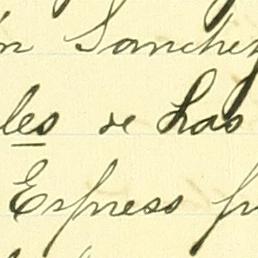 n Sanchez
les se has
Express fr